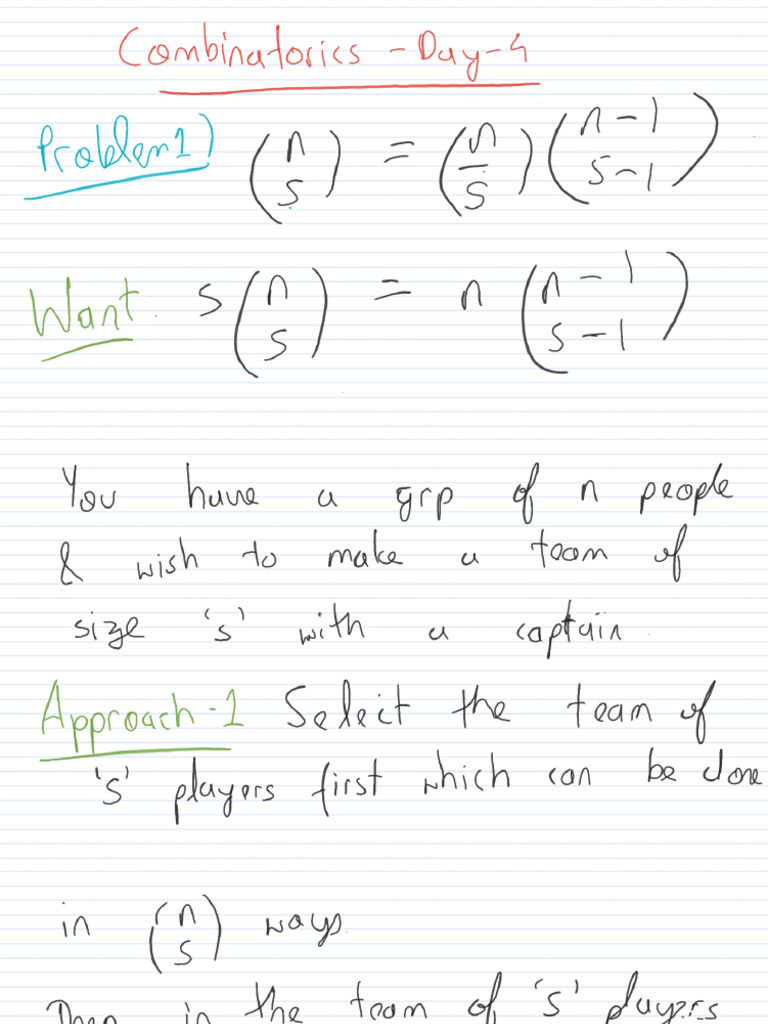 Combinatorics - Day - 4
Problem 1) (n s) = (n/s) (n-1 s-1)
Want: s (n s) = n (n-1 s-1)
You have a grp of n people
& wish to make a team of
size 's' with a captain
Approach-1 Select the team of
's' players first which can be done
in (n s) ways.
Then in the team of 's' players